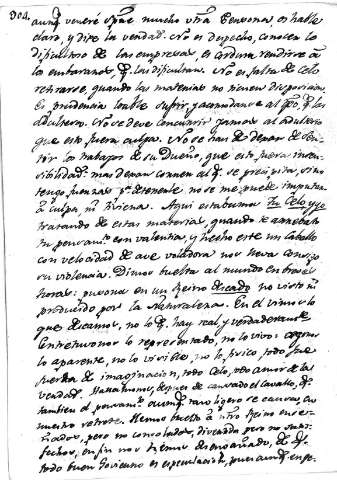 304.
aunq̃ veneré sp̃re mucho vr̃a Persona, os hable
claro, y dire la verdad. No es despecho, conocer lo
dificultoso de las empresas, es cordura rendirse a
los embarazos q̃ las dificultan. No es falta de Celo
retirarse, quando las materias no tienen disposicion.
Es prudencia loable sufrir y acomodarse al q̃ las
adultera. No se deve concurrir jamas al adulterio
que esto fuera culpa. No se han de dejar de sen-
tir los trabajos de su Dueño, que esto fuera insen-
sibilidad: mas dejar correr al q̃ se precipita, si no
tengo fuerzas p.ª detenerle, no se me puede imputar
a culpa, ni tiviera. Aqui estabamos tu Celo y yo
tratando de estas materias, quando te arrebató
tu pensam.to con valentia, y hecho este un Caballo
con velocidad de ave voladora nos lleva consigo
su violencia. Dimos buelta al mundo en breves
horas: pusonos en un Reino ideado no visto ni
producido por la Naturaleza. En el vimos lo
que deseamos, no lo q̃ hay real y verdaderam.te
Entretuvonos lo representado, no lo vivo:
lo aparente, no lo visible, no lo fisico todo fue
fuerza de imaginacion, todo Celo, todo amor de la
verdad. despues de cansado el Cavallo, q̃
tambien el pensam.to aunq̃ tan ligero se cansa,
nuestro retrete. Hemos buelto a nr̃o Reino enseñados,
pero no consolados, divertidos pero no satis-
fechos, en fin nos hemos desengañado, de q̃
todo buen Govierno es especulacion, pues aunq̃